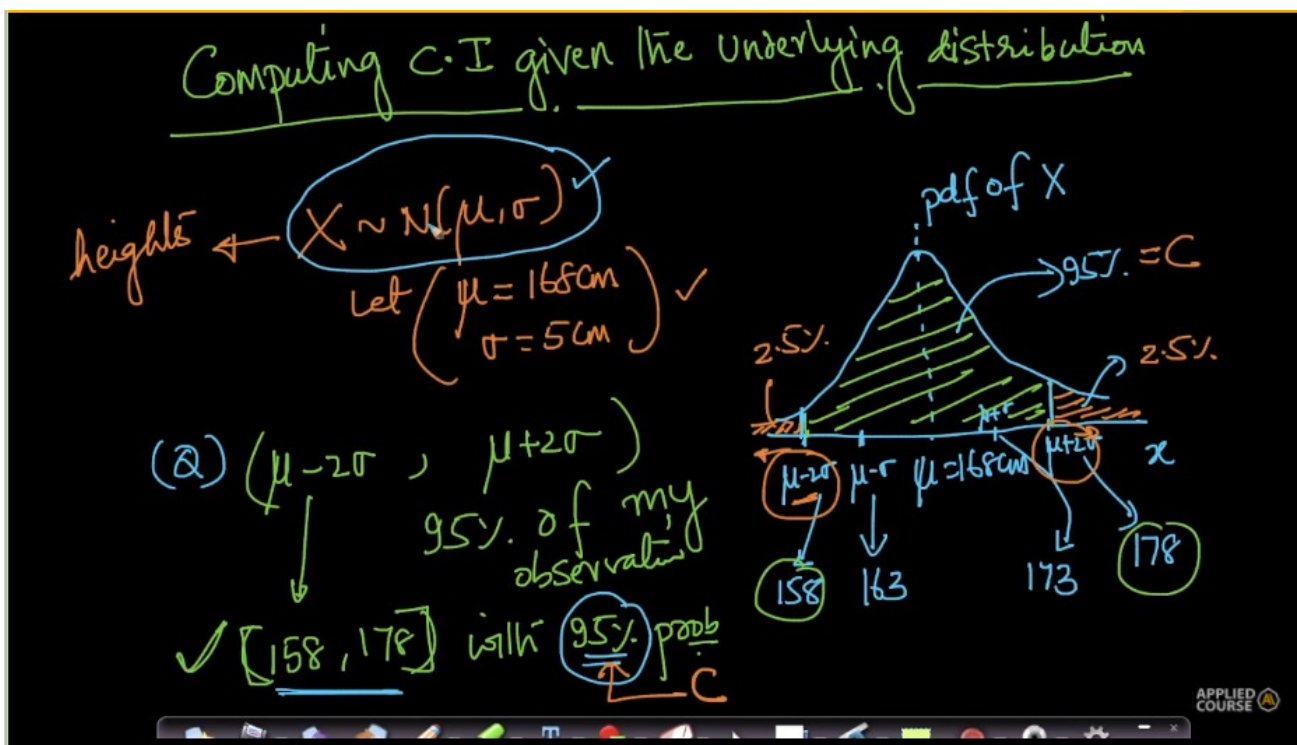 Computing C.I given the underlying distribution
heights ← X ~ N(μ, σ) ✓
Let (μ = 168cm
σ = 5cm) ✓
(Q) (μ-2σ , μ+2σ)
95% of my
observation
✓ [158, 178] with 95% prob
C
pdf of X
95% = C
2.5%
2.5%
μ-2σ μ-σ μ=168cm μ+σ μ+2σ x
158 163 173 178
APPLIED
COURSE